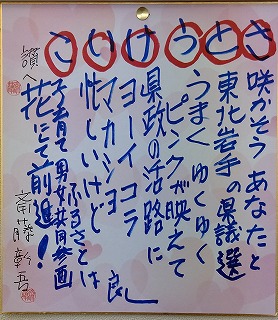 さとうけいこ
咲かそう あなたと
東北岩手の県議選
うまくゆくゆく
ピンクが映えて
県政の活路に
ヨーイコラ
マカショ
忙しいけど
ふるさとは良し
子育て 男女共同参画
花にて前進!
讃へ
斎藤彰吾